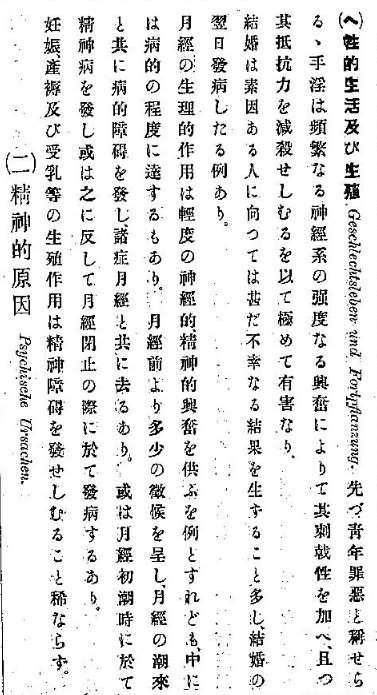 (ヘ)性的生活及び生殖 Geschlechtsleben und Fortpflanzung. 先づ青年罪惡と稱せら
るゝ手淫は頻繁なる神經系の强度なる興奮によりて其刺戟性を加へ、且つ
其抵抗力を減殺せしむるを以て極めて有害なり。
結婚は素因ある人に向つては甚だ不幸なる結果を生すること多し、結婚の
翌日發病したる例あり。
月經の生理的作用は輕度の神經的、精神的興奮を供ふを例とすれども、中に
は病的の程度に達するもあり。月經前より多少の徵候を呈し、月經の潮來
と共に病的障碍を發し諸症月經と共に去るあり。或は月經初潮時に於て
精神病を發し或は之に反して月經閉止の際に於て發病するあり。
妊娠、產褥及び受乳等の生殖作用は精神障碍を發せしむること稀ならず。
(二)精神的原因 Psychische Ursachen.